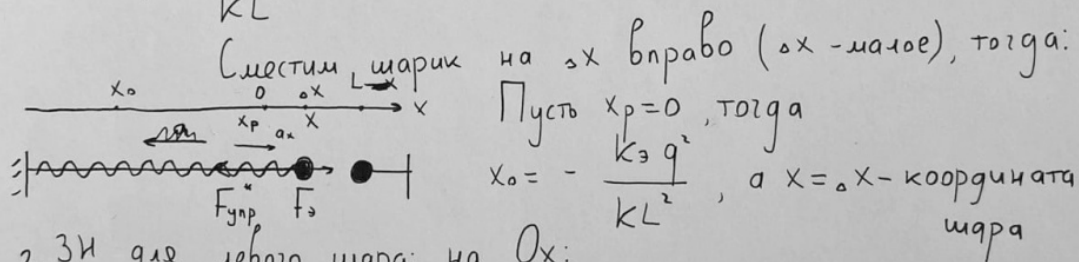 KL
Сместим шарик на △x вправо (△x - малое), тогда:
x₀ 0 △x L x
xₚ aₓ x
Пусть xₚ=0, тогда
x₀ = - kэ q² / KL² , а x = △x - координата
шара
Fупр Fэ
2 ЗН для левого шара: на Ox: